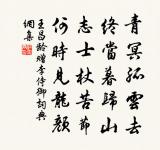 青冥孤雲去
終當暮歸山
志士杖苦節
何時見龍顏
王昌齡贈李侍御詞典
網集